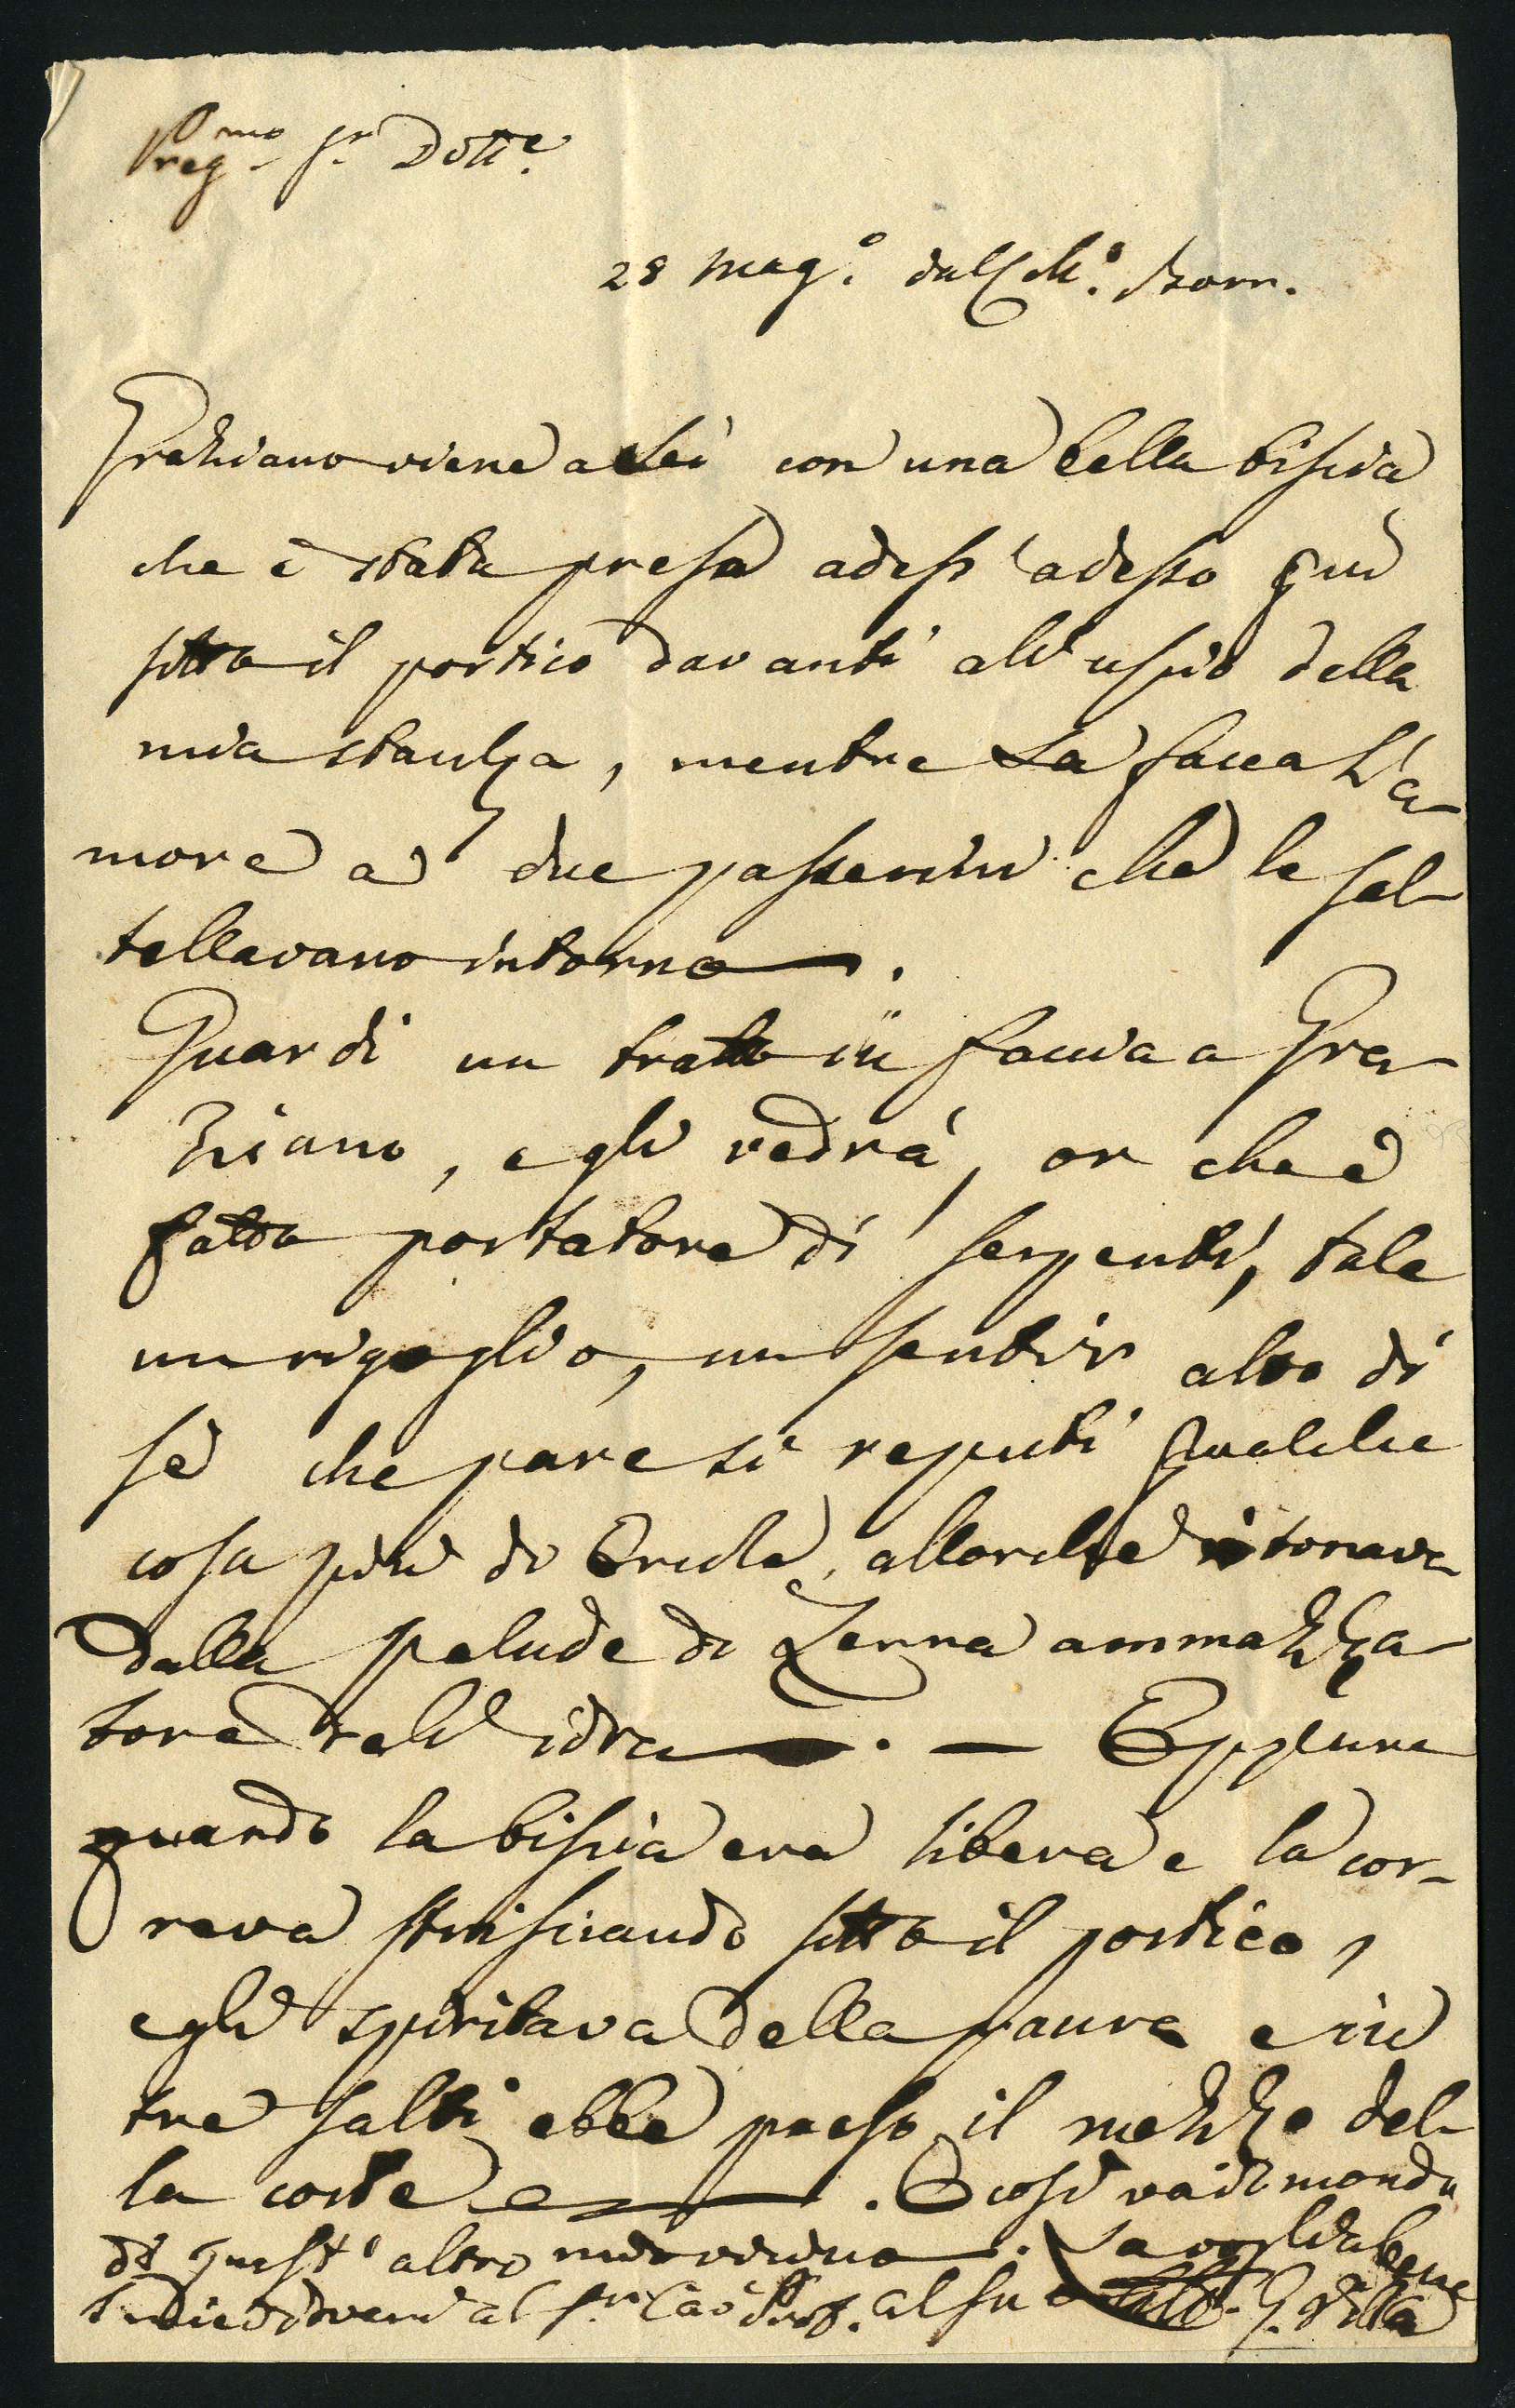 Preg.mo Sr. Dotte.
28 Mag.o dall
Grahiano viene a Lei con una bella biscia
che è stata presa adess'adesso qui
sotto il portico davanti all'uscio della
mia stanza, mentre la facea l'a-
more a due passerini che le sal-
tellavano intorno.
Guardi un tratto in faccia a Gra-
ziano, e gli vedrà, or che è
fatto portatore di serpenti, tale
un rigoglio, un sentir alto di
sé che pare si reputi qualche
cosa più di Ercole, allorché tornava
dalla palude di Lerna ammazza-
tore dell'idra. — Eppure
quando la biscia era libera e la cor-
reva strisciando sotto il portico,
egli spiritava della paura e in
tre salti ebbe preso il mezzo del-
la corte. E così va il mondo
di quest'altro. La voglia bene
al Sr. Cav. Prof. al suo